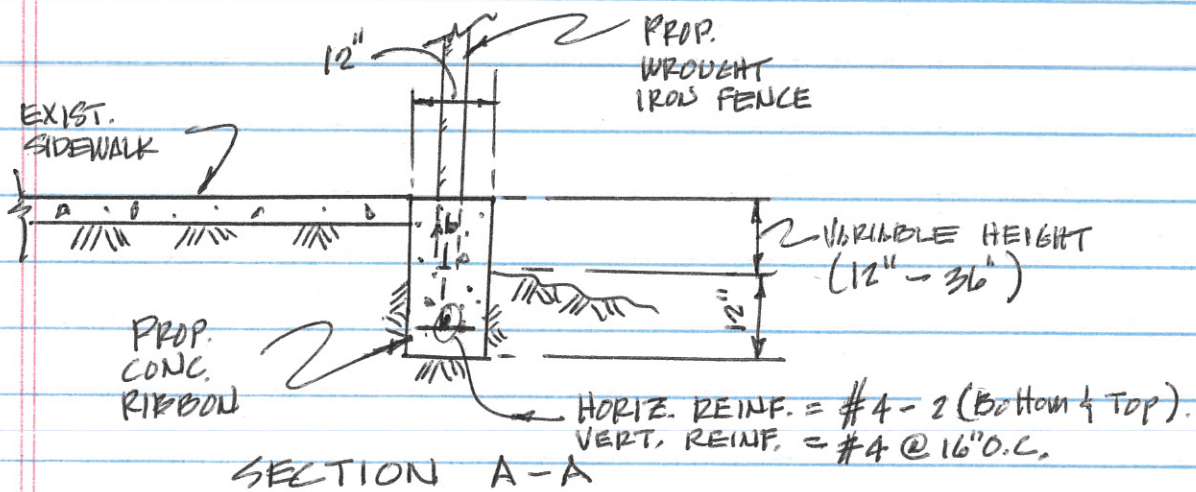 12"
PROP.
WROUGHT
IRON FENCE
EXIST.
SIDEWALK
VARIABLE HEIGHT
(12" - 36")
12"
PROP.
CONC.
RIBBON
HORIZ. REINF. = #4 - 2 (Bottom & Top).
VERT. REINF. = #4 @ 16" O.C.
SECTION A-A